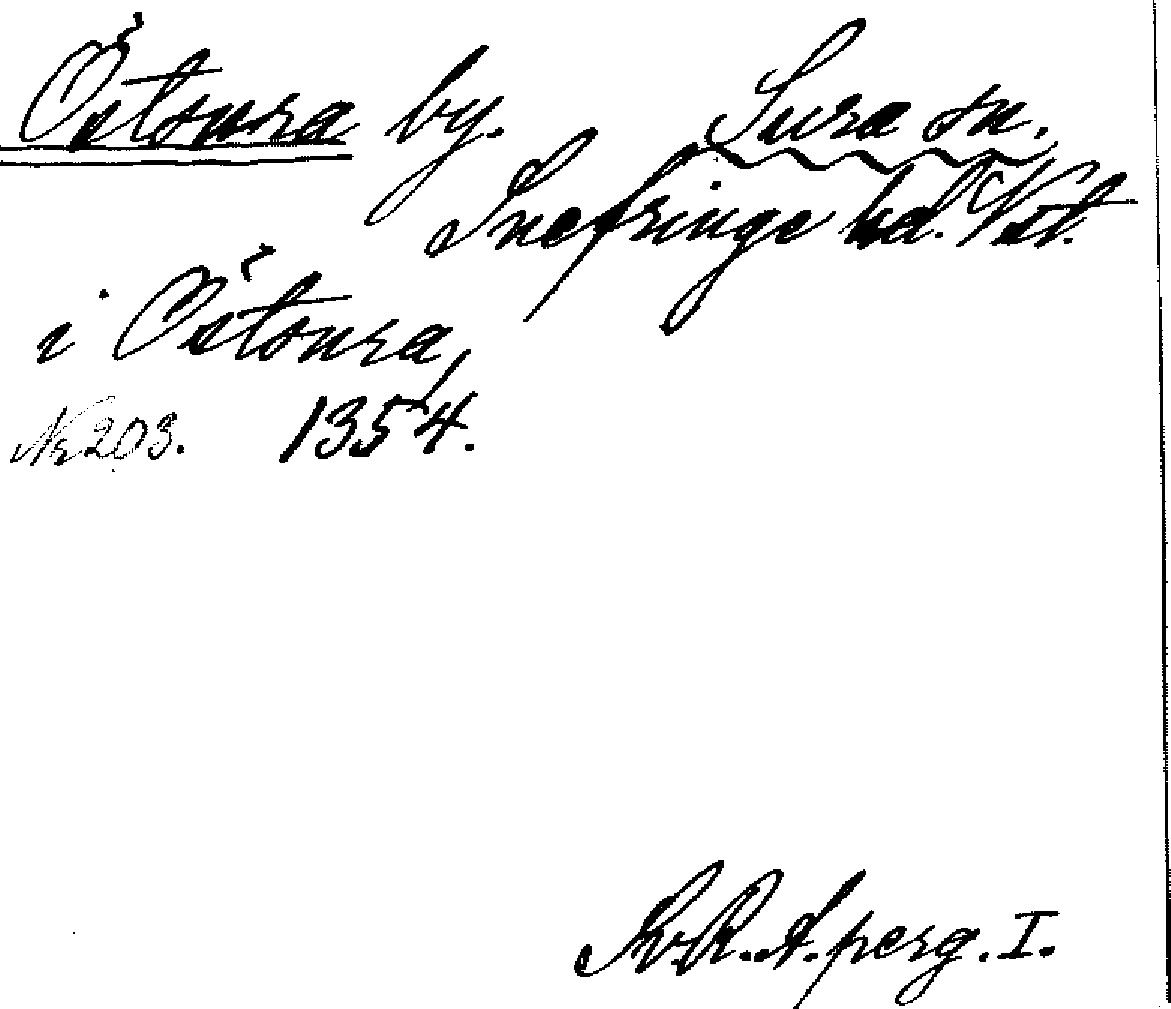 Östsura by. Sura sn.
Snefringe hd. Vstl.
i Östsura,
Nr 203. 1354.
Sv. R. A. perg. I.